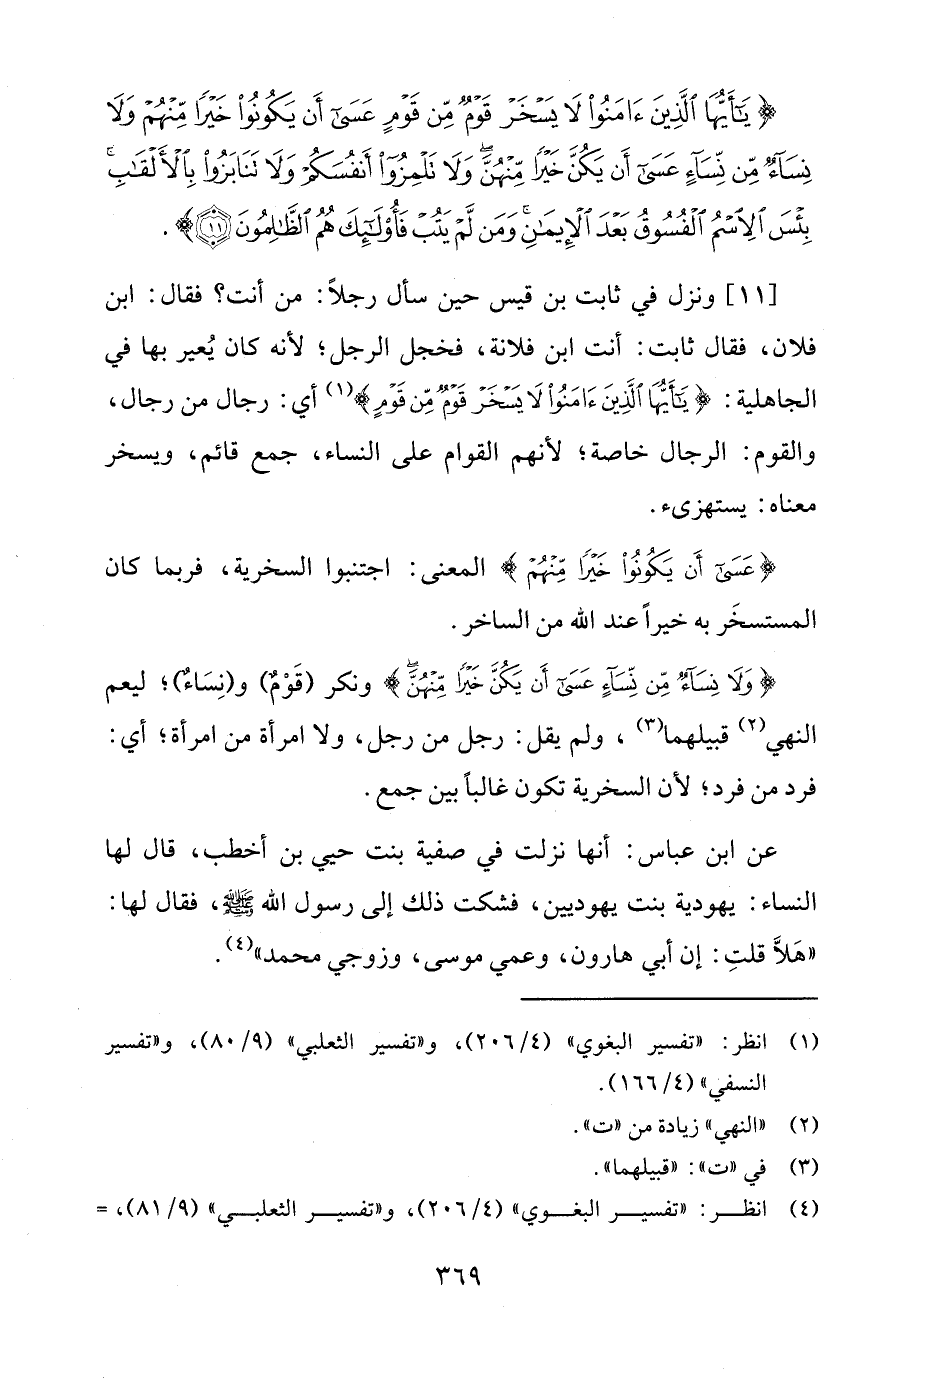 ﴿ يَٰٓأَيُّهَا ٱلَّذِينَ ءَامَنُوا۟ لَا يَسْخَرْ قَوْمٌ مِّن قَوْمٍ عَسَىٰٓ أَن يَكُونُوا۟ خَيْرًا مِّنْهُمْ وَلَا
نِسَآءٌ مِّن نِّسَآءٍ عَسَىٰٓ أَن يَكُنَّ خَيْرًا مِّنْهُنَّ ۖ وَلَا تَلْمِزُوٓا۟ أَنفُسَكُمْ وَلَا تَنَابَزُوا۟ بِٱلْأَلْقَٰبِ ۖ
بِئْسَ ٱلِٱسْمُ ٱلْفُسُوقُ بَعْدَ ٱلْإِيمَٰنِ ۚ وَمَن لَّمْ يَتُبْ فَأُو۟لَٰٓئِكَ هُمُ ٱلظَّٰلِمُونَ ﴿١١﴾ ﴾ .
[١١] ونزل في ثابت بن قيس حين سأل رجلاً: من أنت؟ فقال: ابن
فلان، فقال ثابت: أنت ابن فلانة، فخجل الرجل؛ لأنه كان يُعير بها في
الجاهلية: ﴿ يَٰٓأَيُّهَا ٱلَّذِينَ ءَامَنُوا۟ لَا يَسْخَرْ قَوْمٌ مِّن قَوْمٍ ﴾(١) أي: رجال من رجال،
والقوم: الرجال خاصة؛ لأنهم القوام على النساء، جمع قائم، ويسخر
معناه: يستهزىء.
﴿ عَسَىٰٓ أَن يَكُونُوا۟ خَيْرًا مِّنْهُمْ ﴾ المعنى: اجتنبوا السخرية، فربما كان
المستسخَر به خيراً عند الله من الساخر.
﴿ وَلَا نِسَآءٌ مِّن نِّسَآءٍ عَسَىٰٓ أَن يَكُنَّ خَيْرًا مِّنْهُنَّ ۖ ﴾ ونكر (قَوْمٌ) و(نِسَاءٌ)؛ ليعم
النهي(٢) قبيلهما(٣)، ولم يقل: رجل من رجل، ولا امرأة من امرأة؛ أي:
فرد من فرد؛ لأن السخرية تكون غالباً بين جمع.
عن ابن عباس: أنها نزلت في صفية بنت حيي بن أخطب، قال لها
النساء: يهودية بنت يهوديين، فشكت ذلك إلى رسول الله ﷺ، فقال لها:
«هَلاَّ قلتِ: إن أبي هارون، وعمي موسى، وزوجي محمد»(٤).
(١) انظر: «تفسير البغوي» (٤/ ٢٠٦)، و«تفسير الثعلبي» (٩/ ٨٠)، و«تفسير
النسفي» (٤/ ١٦٦).
(٢) «النهي» زيادة من «ت».
(٣) في «ت»: «قبيلهما».
(٤) انظـر: «تفسيـر البغـوي» (٤/ ٢٠٦)، و«تفسيـر الثعلبـي» (٩/ ٨١)، =
٣٦٩